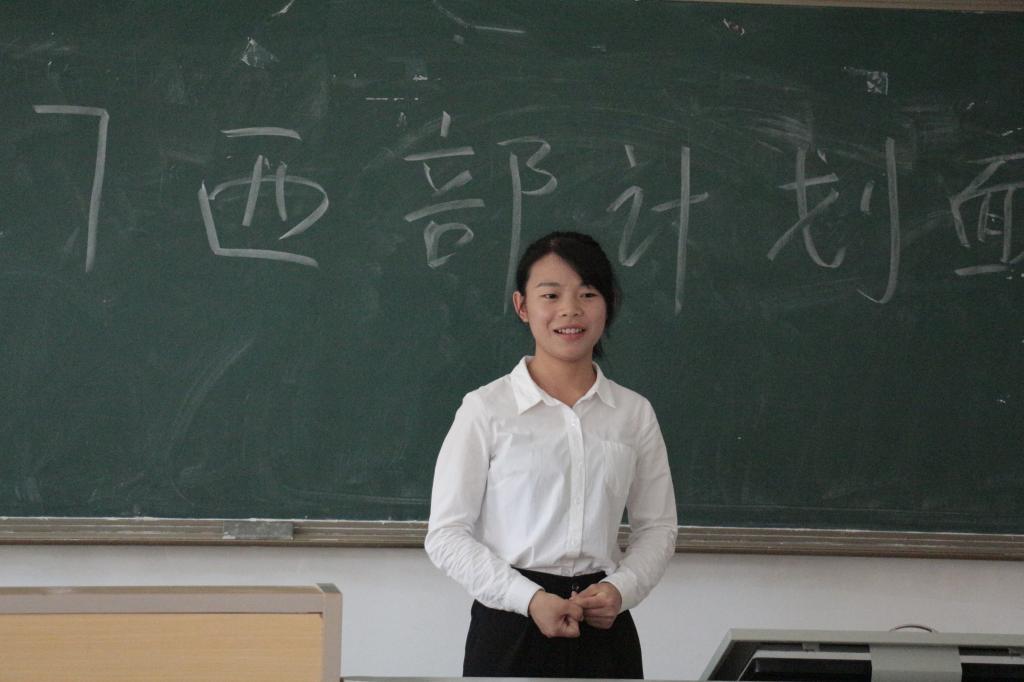 西部计划面